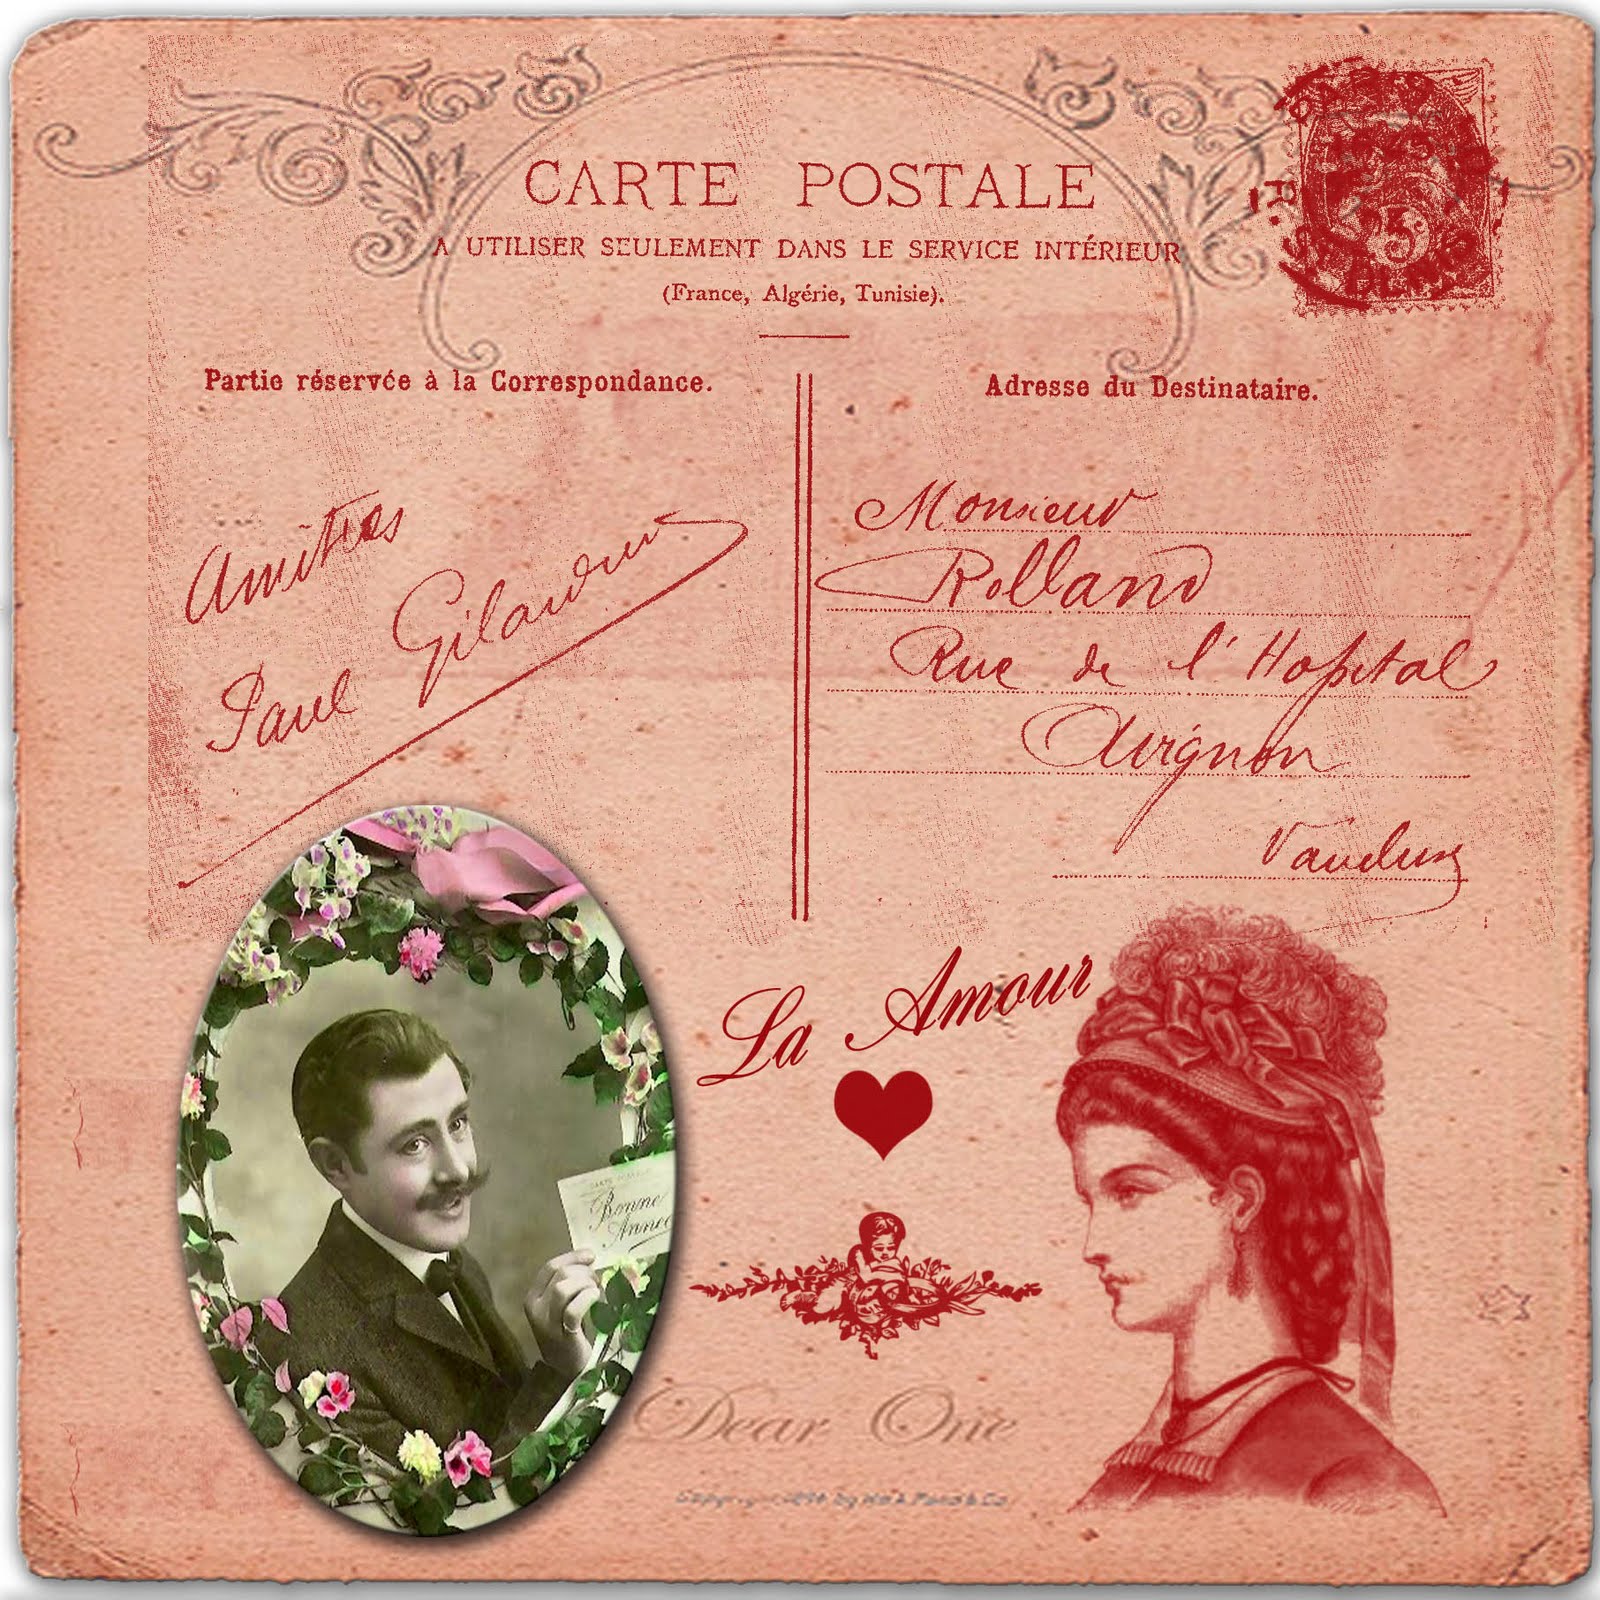 CARTE POSTALE
A UTILISER SEULEMENT DANS LE SERVICE INTÉRIEUR
(France, Algérie, Tunisie).
Partie réservée à la Correspondance.
Adresse du Destinataire.
Amitiés
Paul
Monsieur
Rolland
Rue de l'Hopital
Avignon
Vaucluse
La Amour
CARTE POSTALE
Bonne
Année
Dear One
Copyright by & Co